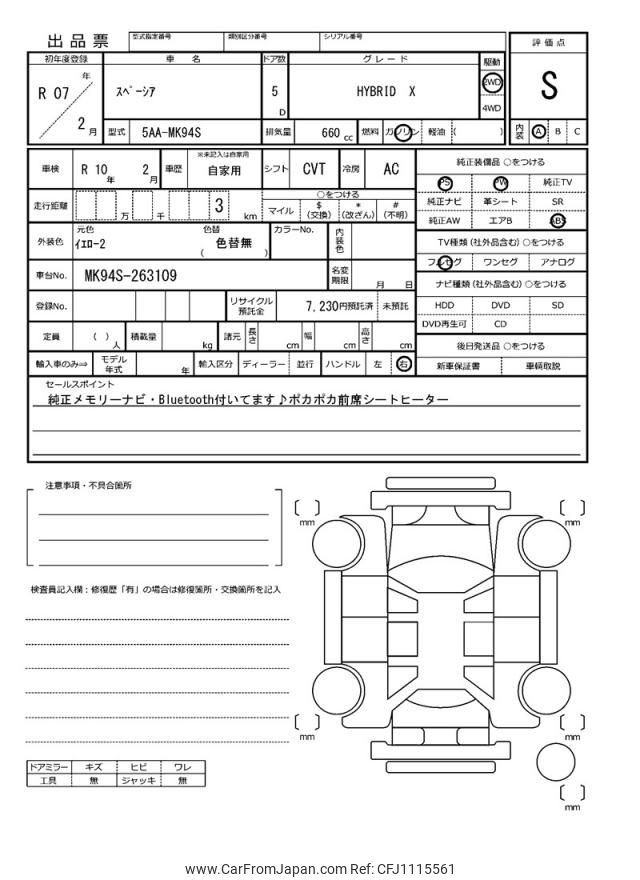 出品票
型式指定番号 類別区分番号 シリアル番号
評価点
S
初年度登録 車名 ドア数 グレード 駆動
R 07 年 2 月
スペーシア
5 D
HYBRID X
2WD
4WD
型式 5AA-MK94S 排気量 660 cc 燃料 ガソリン 軽油 ( )
内装 A B C
車検 R 10 年 2 月 車歴 ※未記入は自家用 自家用 シフト CVT 冷房 AC
純正装備品 ○をつける
PS PW 純正TV
純正ナビ 革シート SR
純正AW エアB ABS
走行距離 万 千 3 km
○をつける
マイル $(交換) *(改ざん) #(不明)
TV種類(社外品含む)○をつける
フルセグ ワンセグ アナログ
外装色 元色 イエロー2 色替 色替無 ( ) カラーNo. 内装色
ナビ種類(社外品含む)○をつける
HDD DVD SD
DVD再生可 CD
車台No. MK94S-263109 名変期限 月 日
登録No. リサイクル預託金 7,230円預託済 未預託
定員 ( )人 積載量 kg 諸元 長さ cm 幅 cm 高さ cm
後日発送品 ○をつける
新車保証書 車輌取説
輸入車のみ⇨ モデル年式 年 輸入区分 ディーラー 並行 ハンドル 左 右
セールスポイント
純正メモリーナビ・Bluetooth付いてます♪ポカポカ前席シートヒーター
注意事項・不具合箇所
検査員記入欄：修復歴「有」の場合は修復箇所・交換箇所を記入
mm
mm
mm
mm
mm
ドアミラー キズ ヒビ ワレ
工具 無 ジャッキ 無
www.CarFromJapan.com Ref: CFJ1115561